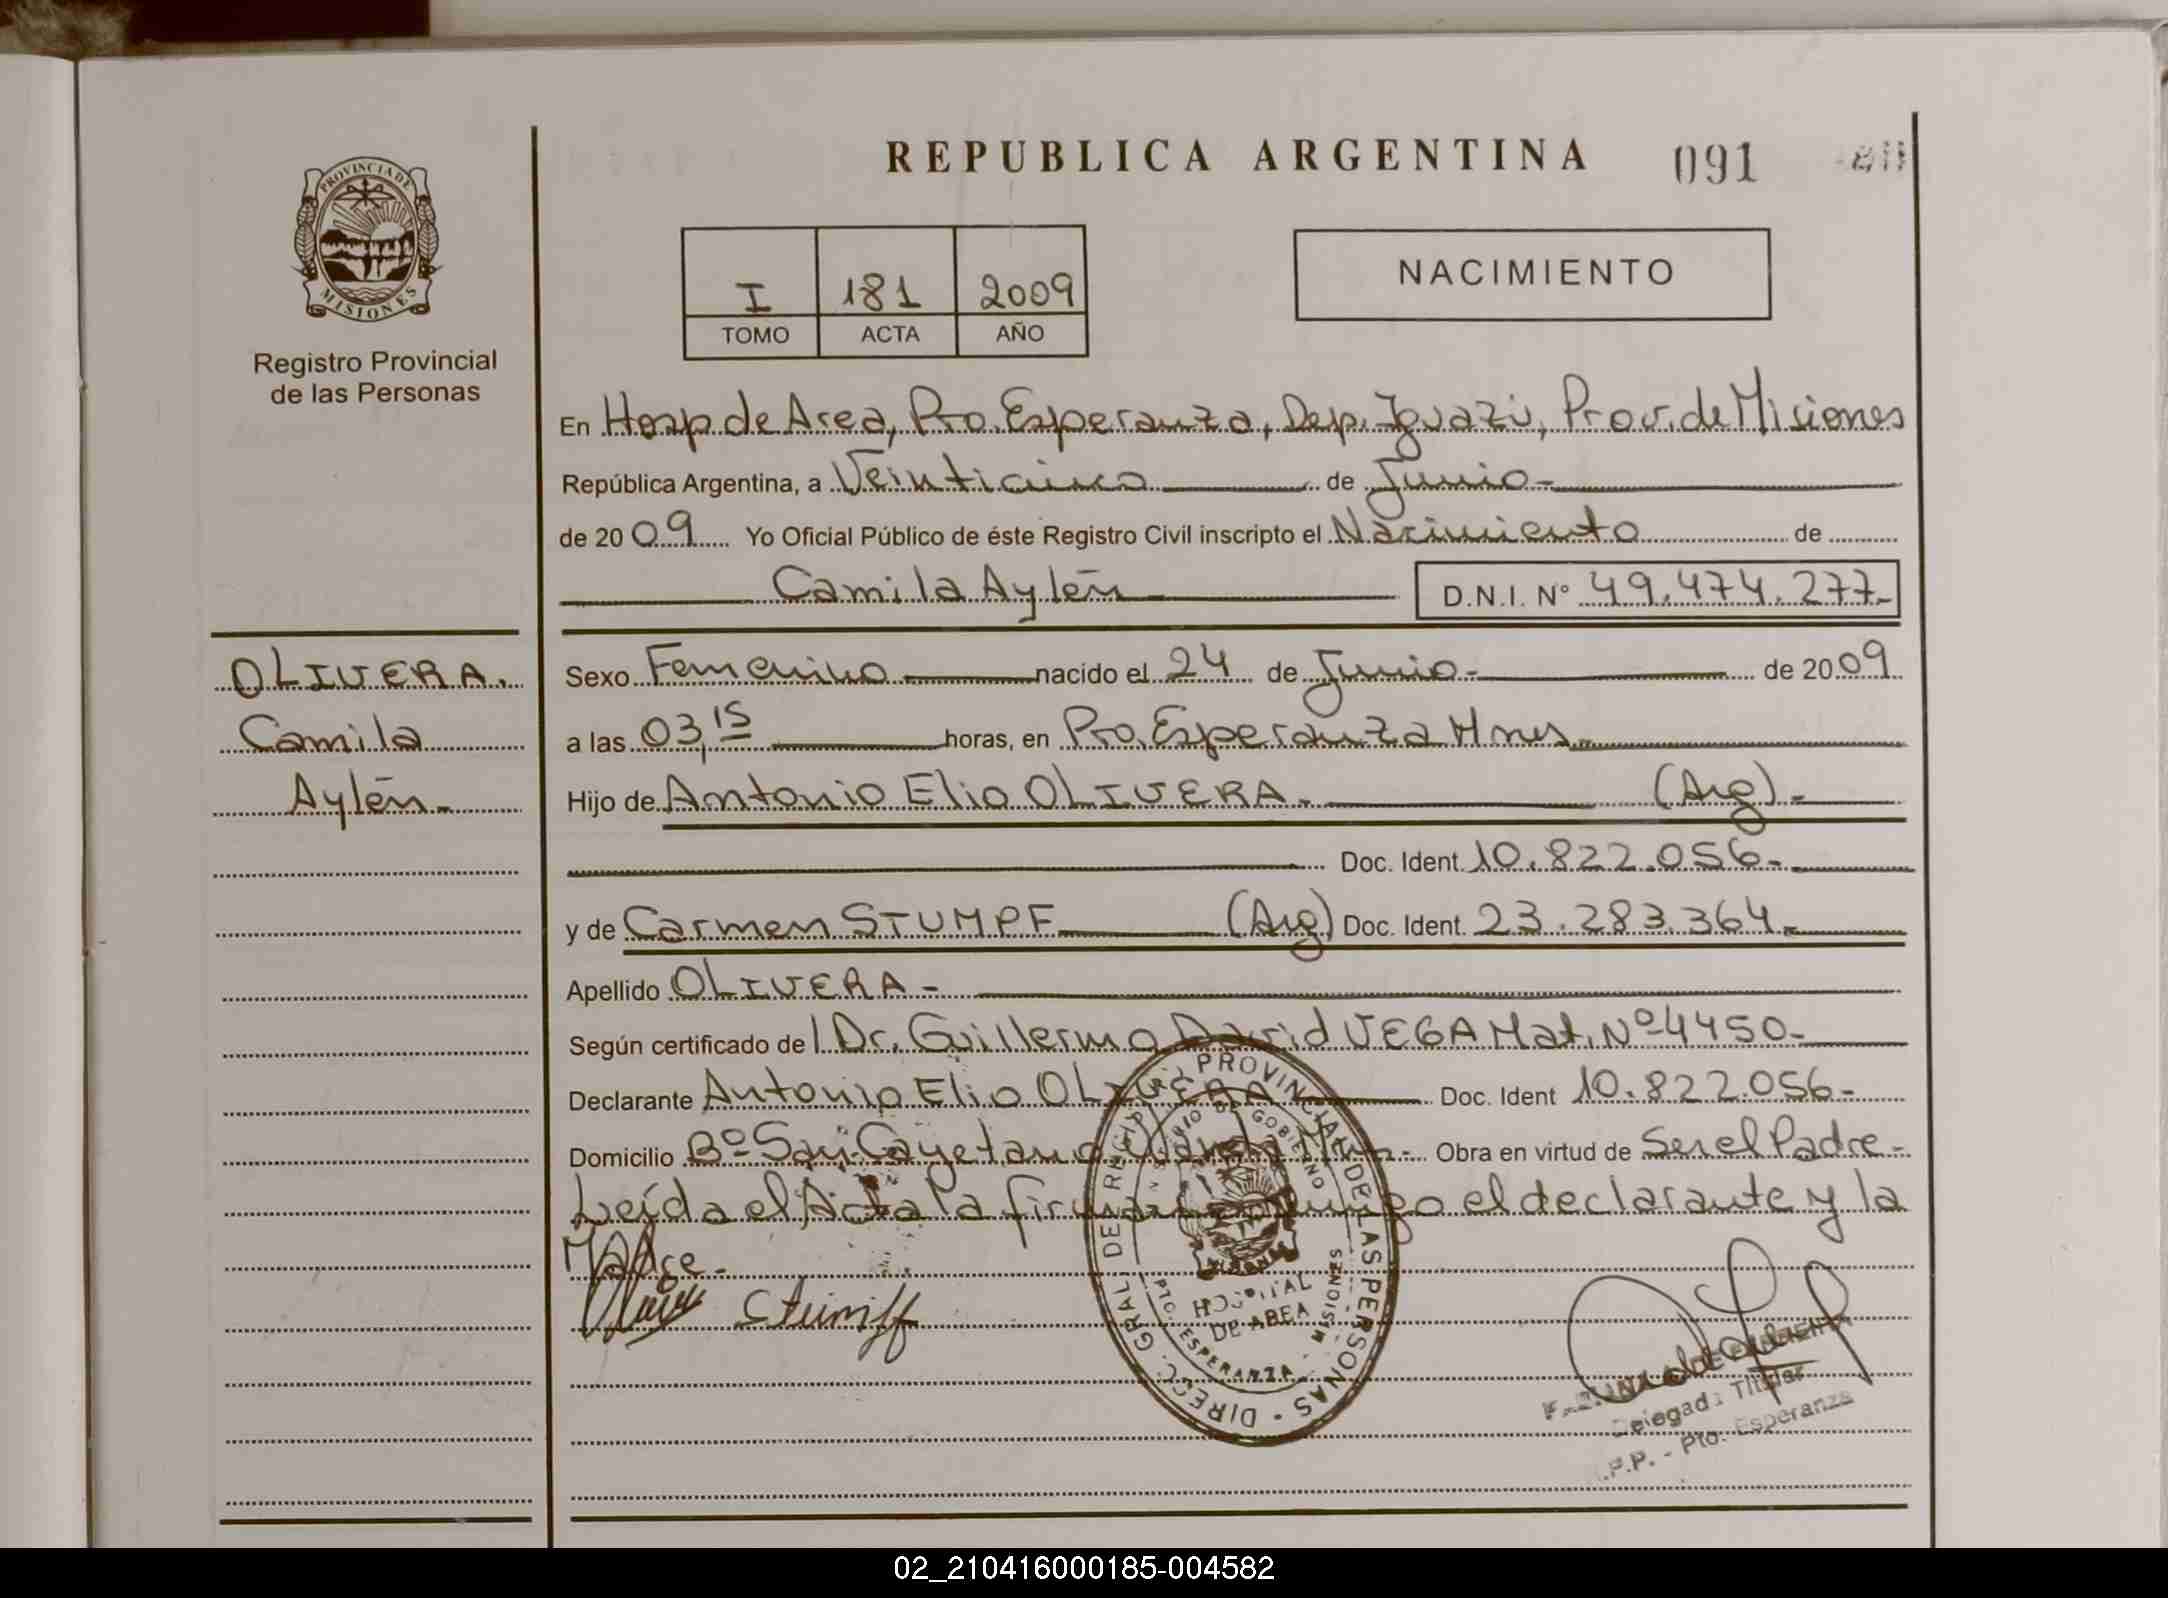 REPUBLICA ARGENTINA 091
PROVINCIA DE
MISIONES
Registro Provincial
de las Personas
I 181 2009
TOMO ACTA AÑO
NACIMIENTO
En Hosp de Area, Pto. Esperanza, Dep. Iguazú, Prov. de Misiones
República Argentina, a Veinticinco de Junio.-
de 20 09 Yo Oficial Público de éste Registro Civil inscripto el Nacimiento de
Camila Aylén.- D.N.I. Nº 49.474.277.-
OLIVERA.
Camila
Aylén.-
Sexo Femenino nacido el 24 de Junio.- de 20 09
a las 03,15 horas, en Pto. Esperanza Mnes.-
Hijo de Antonio Elio OLIVERA.- (Arg).-
Doc. Ident. 10.822.056.-
y de Carmen STUMPF (Arg) Doc. Ident. 23.283.364.-
Apellido OLIVERA.-
Según certificado de Dr. Guillermo David VEGA Mat. Nº 4450.-
Declarante Antonio Elio OLIVERA Doc. Ident 10.822.056.-
Domicilio Bº San Cayetano Wanda Mnes.- Obra en virtud de Ser el Padre.-
Leída el Acta la firman conmigo el declarante y la
Madre.-
DIRECC. GRAL. DE REGISTRO PROVINCIAL DE LAS PERSONAS
MINISTERIO DE GOBIERNO
HOSPITAL
DE AREA
PTO. ESPERANZA - MISIONES
Delegada Titular
.P.P. - Pto. Esperanza
02_210416000185-004582